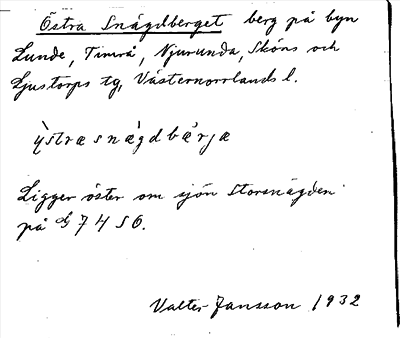 Östra Snägdberget berg på byn
Lunde, Timrå, Njurunda, Sköns och
Ljustorps tg, Västernorrlands l.
ỳstræsnæ̀gdbærjæ
Ligger öster om sjön Storsnägden
på 74 SO.
Valter Jansson 1932